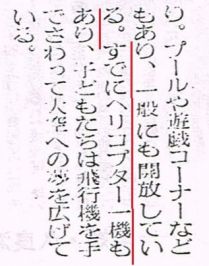 り。プールや遊戯コーナーなど
もあり、一般にも開放してい
る。すでにヘリコプター一機も
あり、子どもたちは飛行機を手
でさわって大空への夢を広げて
いる。